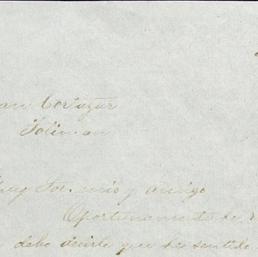 an Cortazar
Toliman
Muy Sor. mio y amigo
Oportunamente
debo decirle que he sentido